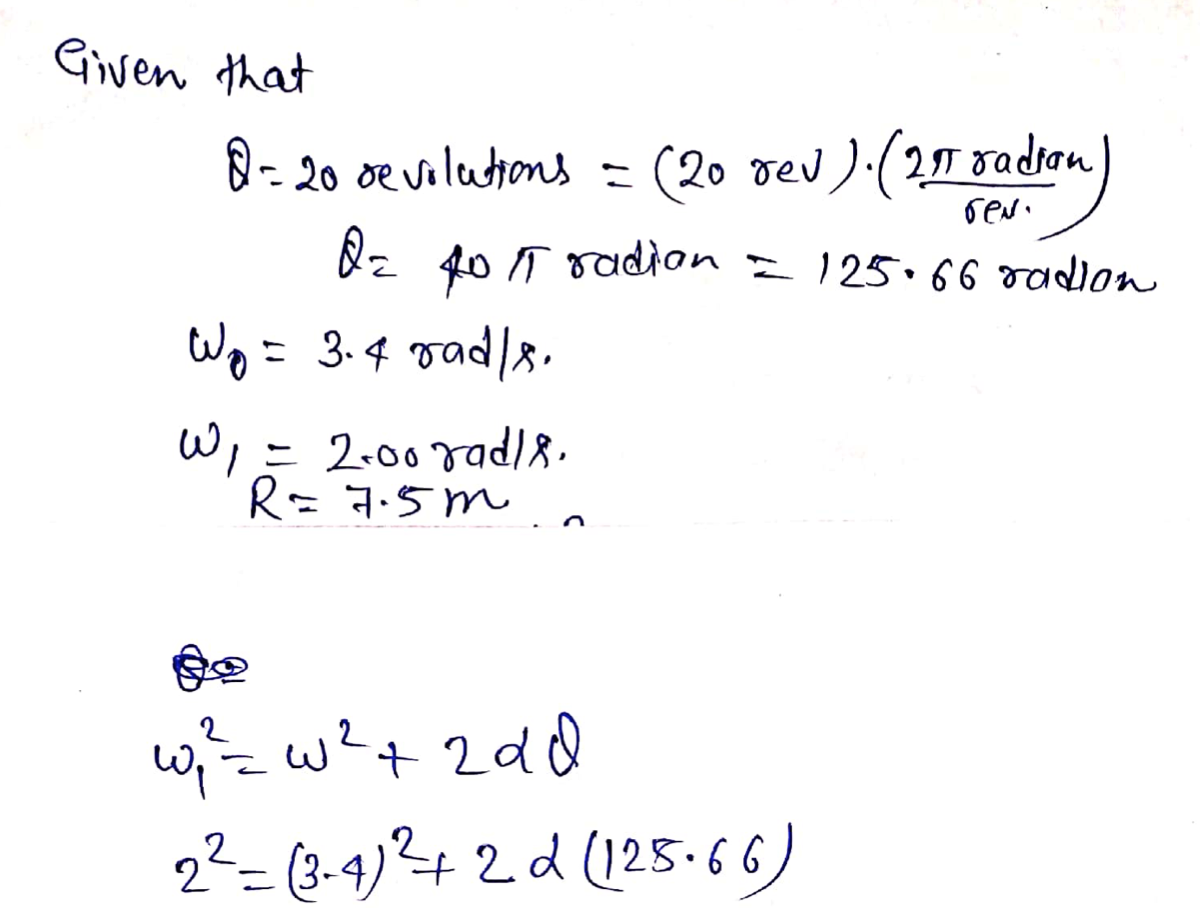 Given that
θ = 20 revolutions = (20 rev).(2π radian/rev.)
θ = 40 π radian = 125.66 radian
ω₀ = 3.4 rad/s.
ω₁ = 2.00 rad/s.
R = 7.5 m
ω₁² = ω² + 2αθ
2² = (3.4)² + 2α(125.66)